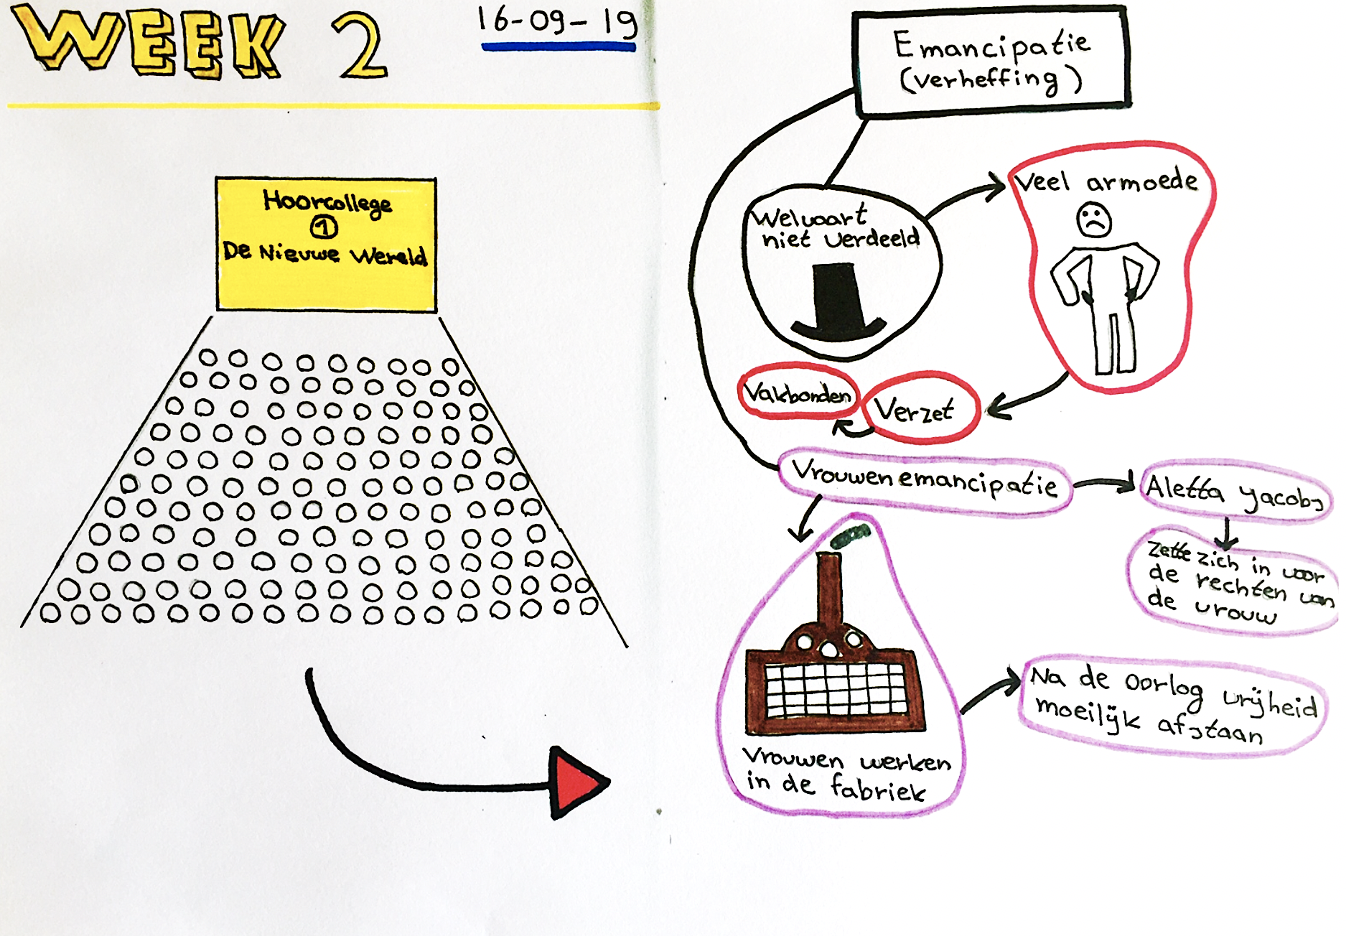 WEEK 2
16-09-19
Hoorcollege
1
De Nieuwe Wereld
Emancipatie
(verheffing)
Welvaart
niet verdeeld
Veel armoede
Vakbonden
Verzet
Vrouwenemancipatie
Aletta Jacobs
Zette zich in voor
de rechten van
de vrouw
Vrouwen werken
in de fabriek
Na de oorlog vrijheid
moeilijk afstaan